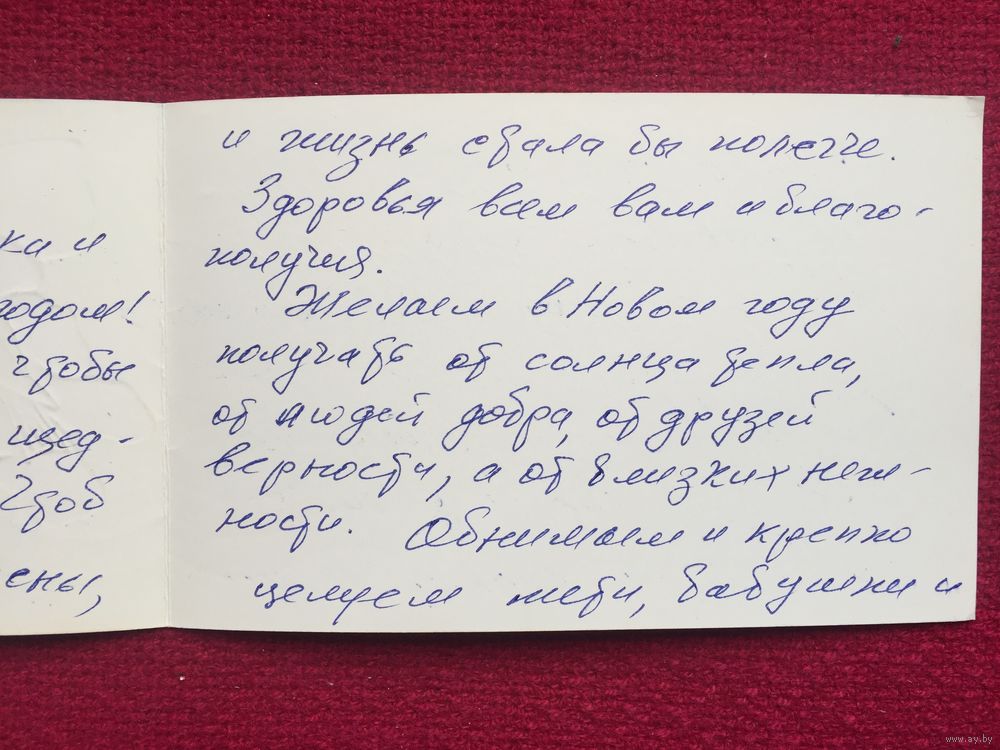 ка и
годом!
чтобы
щед-
Чтоб
ены,
и жизнь стала бы полегче.
Здоровья всем вам и благо-
получия.
Желаем в Новом году
получать от солнца тепла,
от людей добра, от друзей
верности, а от близких неж-
ности. Обнимаем и крепко
целуем дети, бабушки и
www.ay.by